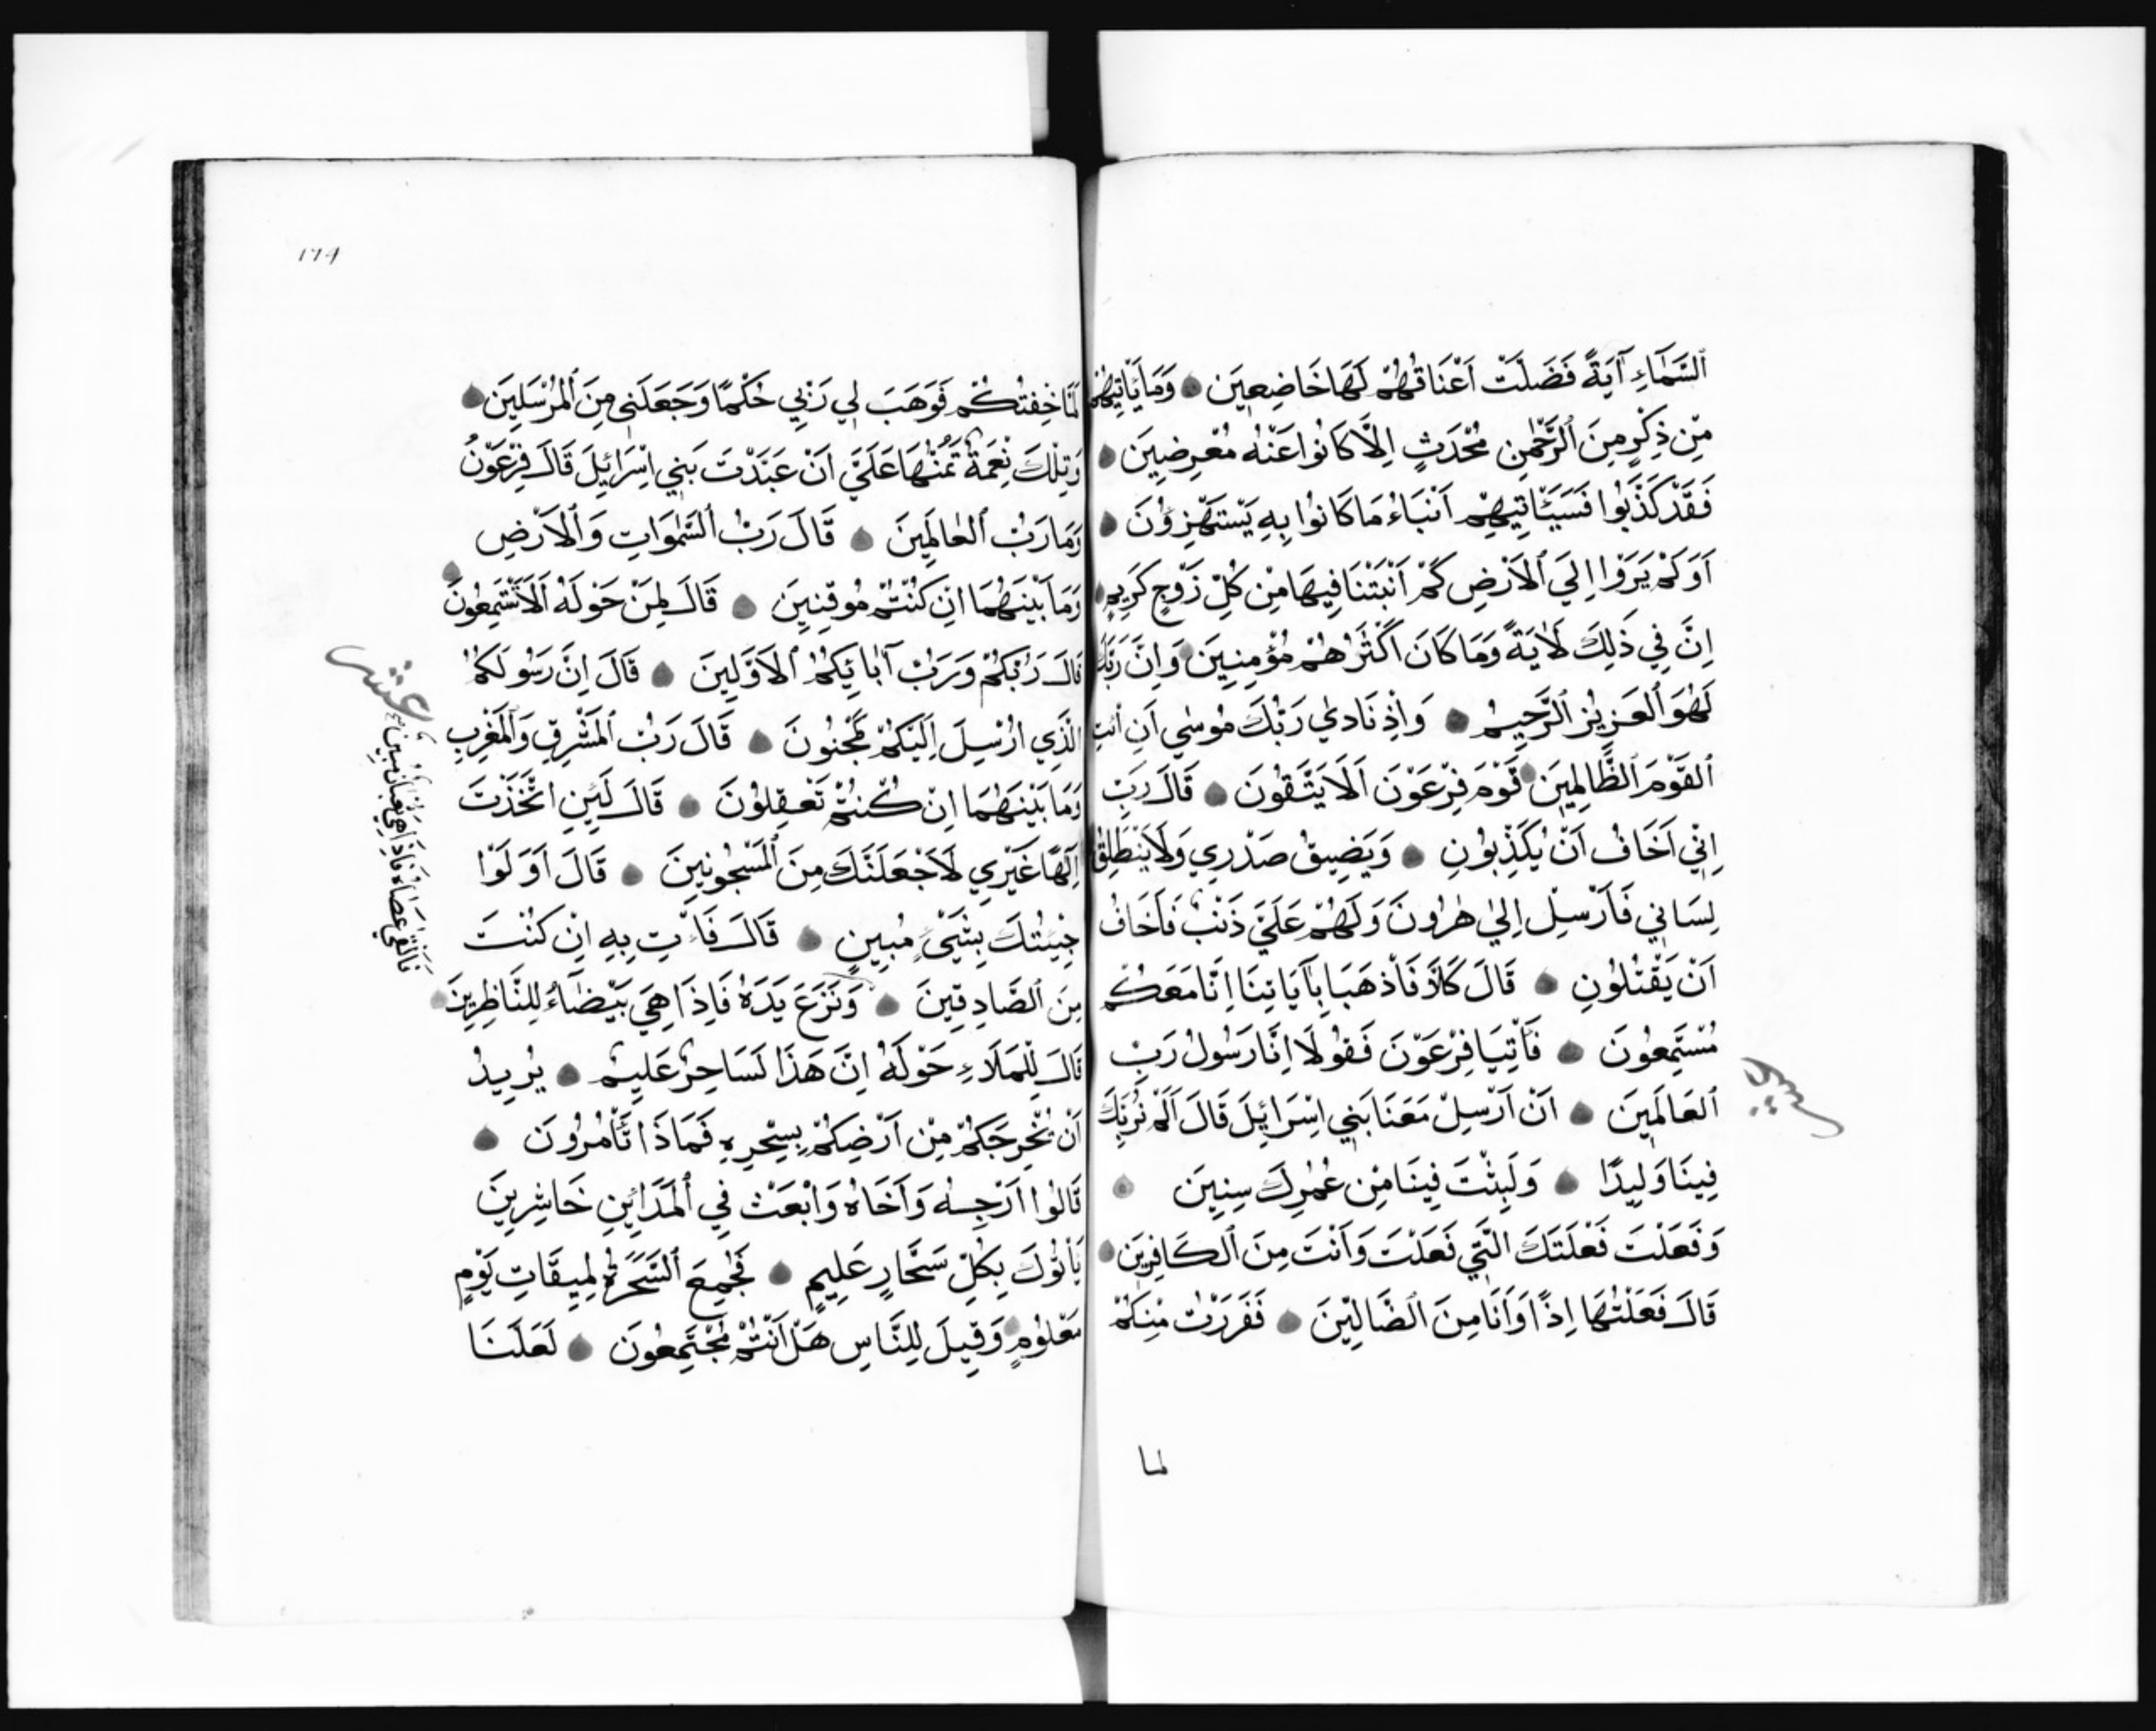 اَلسَّمَآءِ آيَةً فَضَلَّتْ اَعْنَاقُهُمْ لَهَا خَاضِعِينَ وَمَا يَاْتِيهِمْ
مِنْ ذِكْرٍ مِنَ ٱلرَّحْمٰنِ مُحْدَثٍ اِلَّا كَانُوا عَنْهُ مُعْرِضِينَ
فَقَدْ كَذَّبُوا فَسَيَاْتِيهِمْ اَنْبَاءُ مَا كَانُوا بِهِ يَسْتَهْزِؤُنَ
اَوَلَمْ يَرَوْا اِلَي ٱلاَرْضِ كَمْ اَنْبَتْنَا فِيهَا مِنْ كُلِّ زَوْجٍ كَرِيمٍ
اِنَّ فِي ذٰلِكَ لَاٰيَةً وَمَا كَانَ اَكْثَرُهُمْ مُؤْمِنِينَ وَاِنَّ رَبَّكَ
لَهُوَ ٱلعَزِيزُ ٱلرَّحِيمُ وَاِذْ نَادٰي رَبُّكَ مُوسٰي اَنِ ائْتِ
ٱلقَوْمَ ٱلظَّالِمِينَ قَوْمَ فِرْعَوْنَ اَلَا يَتَّقُونَ قَالَ رَبِّ
اِنِّي اَخَافُ اَنْ يُكَذِّبُونِ وَيَضِيقُ صَدْرِي وَلَا يَنْطَلِقُ
لِسَانِي فَاَرْسِلْ اِلٰي هٰرُونَ وَلَهُمْ عَلَيَّ ذَنْبٌ فَاَخَافُ
اَنْ يَقْتُلُونِ قَالَ كَلَّا فَاذْهَبَا بِاٰيَاتِنَا اِنَّا مَعَكُمْ
مُسْتَمِعُونَ فَاْتِيَا فِرْعَوْنَ فَقُولَا اِنَّا رَسُولُ رَبِّ
ٱلعَالَمِينَ اَنْ اَرْسِلْ مَعَنَا بَنِي اِسْرَائِلَ قَالَ اَلَمْ نُرَبِّكَ
فِينَا وَلِيدًا وَلَبِثْتَ فِينَا مِنْ عُمُرِكَ سِنِينَ
وَفَعَلْتَ فَعْلَتَكَ الَّتِي فَعَلْتَ وَاَنْتَ مِنَ ٱلكَافِرِينَ
قَالَ فَعَلْتُهَا اِذًا وَاَنَا مِنَ ٱلضَّالِّينَ فَفَرَرْتُ مِنْكُمْ
لما
١٧٩
لَمَّا خِفْتُكُمْ فَوَهَبَ لِي رَبِّي حُكْمًا وَجَعَلَنِي مِنَ ٱلمُرْسَلِينَ
وَتِلْكَ نِعْمَةٌ تَمُنُّهَا عَلَيَّ اَنْ عَبَّدْتَ بَنِي اِسْرَائِلَ قَالَ فِرْعَوْنُ
وَمَا رَبُّ ٱلعَالَمِينَ قَالَ رَبُّ ٱلسَّمٰوَاتِ وَٱلاَرْضِ
وَمَا بَيْنَهُمَا اِنْ كُنْتُمْ مُوقِنِينَ قَالَ لِمَنْ حَوْلَهُ اَلَا تَسْتَمِعُونَ
قَالَ رَبُّكُمْ وَرَبُّ آبَائِكُمُ ٱلاَوَّلِينَ قَالَ اِنَّ رَسُولَكُمُ
الَّذِي اُرْسِلَ اِلَيْكُمْ لَمَجْنُونَ قَالَ رَبُّ ٱلمَشْرِقِ وَٱلمَغْرِبِ
وَمَا بَيْنَهُمَا اِنْ كُنْتُمْ تَعْقِلُونَ قَالَ لَئِنِ اتَّخَذْتَ
اِلٰهًا غَيْرِي لَاَجْعَلَنَّكَ مِنَ ٱلمَسْجُونِينَ قَالَ اَوَلَوْا
جِئْتُكَ بِشَيْءٍ مُبِينٍ قَالَ فَاْتِ بِهِ اِنْ كُنْتَ
مِنَ ٱلصَّادِقِينَ وَنَزَعَ يَدَهُ فَاِذَا هِيَ بَيْضَآءُ لِلنَّاظِرِينَ
قَالَ لِلْمَلَاءِ حَوْلَهُ اِنَّ هَذَا لَسَاحِرٌ عَلِيمٌ يُرِيدُ
اَنْ يُخْرِجَكُمْ مِنْ اَرْضِكُمْ بِسِحْرِهِ فَمَاذَا تَاْمُرُونَ
قَالُوا اَرْجِهْ وَاَخَاهُ وَابْعَثْ فِي ٱلمَدَائِنِ حَاشِرِينَ
يَاْتُوكَ بِكُلِّ سَحَّارٍ عَلِيمٍ فَجُمِعَ ٱلسَّحَرَةُ لِمِيقَاتِ يَوْمٍ
مَعْلُومٍ وَقِيلَ لِلنَّاسِ هَلْ اَنْتُمْ مُجْتَمِعُونَ لَعَلَنَا
عشر
فَاَلْقٰي عَصَاهُ فَاِذَا هِيَ ثُعْبَانٌ مُبِينٌ